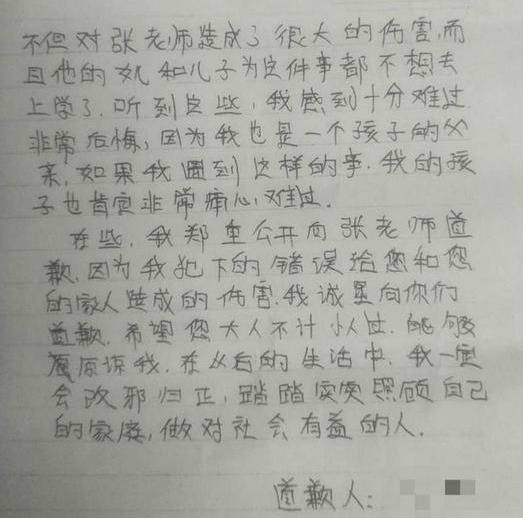 不但对张老师造成了很大的伤害,而
且他的女儿和儿子为这件事都不想去
上学了.听到这些,我感到十分难过
非常后悔,因为我也是一个孩子的父
亲,如果我遇到这样的事.我的孩
子也肯定非常痛心,难过.
在些,我郑重公开向张老师道
歉.因为我犯下的错误给您和您
的家人造成的伤害.我诚恳向你们
道歉.希望您大人不计小人过.能够
原谅我.在以后的生活中.我一定
会改邪归正,踏踏实实照顾自己
的家庭,做对社会有益的人.
道歉人: